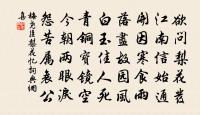 欲問梨花發
江南信始通
開因寒食雨
落盡故園風
白玉佳人死
青銅寶鏡空
今朝兩眼淚
怨苦屬衰公
梅堯臣梨花憶詞典網